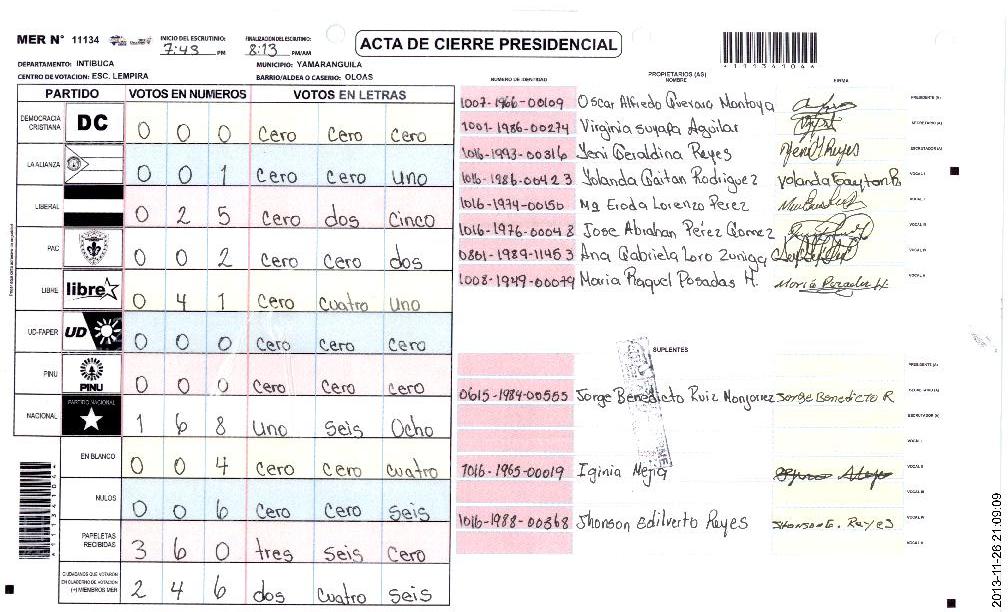 MER N° 11134 INICIO DEL ESCRUTINIO: 7:43 PM FINALIZACION ESCRUTINIO: 8:13 PM/AM
ACTA DE CIERRE PRESIDENCIAL
DEPARTAMENTO: INTIBUCA MUNICIPIO: YAMARANGUILA
CENTRO DE VOTACION: ESC. LEMPIRA BARRIO/ALDEA O CASERIO: OLOAS
PARTIDO VOTOS EN NUMEROS VOTOS EN LETRAS
DEMOCRACIA CRISTIANA DC 0 0 0 Cero Cero Cero
LA ALIANZA 0 0 1 Cero Cero Uno
LIBERAL 0 2 5 Cero dos Cinco
PAC 0 0 2 Cero Cero dos
LIBRE libre 0 4 1 Cero Cuatro Uno
UD-FAPER UD 0 0 0 Cero Cero Cero
PINU PINU 0 0 0 Cero Cero Cero
NACIONAL PARTIDO NACIONAL 1 6 8 Uno Seis Ocho
EN BLANCO 0 0 4 Cero Cero Cuatro
NULOS 0 0 6 Cero Cero Seis
PAPELETAS RECIBIDAS 3 6 0 tres Seis Cero
CIUDADANOS QUE VOTARON EN CUADERNO DE VOTACION (+) MIEMBROS MER 2 4 6 dos Cuatro Seis
PROPIETARIOS (AS)
NUMERO DE IDENTIDAD NOMBRE FIRMA
1007-1966-00109 Oscar Alfredo Guevara Montoya PRESIDENTE (A)
1001-1986-00274 Virginia suyapa Aguilar SECRETARIO (A)
1016-1993-00316 Yeni Geraldina Reyes Yeni Reyes ESCRUTADOR (A)
1016-1986-00423 Yolanda Gaitan Rodriguez Yolanda Gaytan R. VOCAL I
1016-1974-00150 Mª Eroda Lorenzo Perez
1016-1976-00048 Jose Abrahan Pérez Gomez
0801-1989-11453 Ana Gabriela Loro Zuniga
1008-1949-00079 Maria Raquel Posadas H. María Posadas H.
SUPLENTES
PRESIDENTE (A)
0615-1984-00555 Jorge Benedicto Ruiz Monjarrez Jorge Benedicto R SECRETARIO (A)
ESCRUTADOR (A)
VOCAL I
1016-1965-00019 Iginia Mejia VOCAL II
VOCAL III
1016-1988-00368 Jhonson edilverto Reyes Jhonson E. Reyes VOCAL IV
VOCAL V
111341044
111341044
2013-11-26 21:09:09